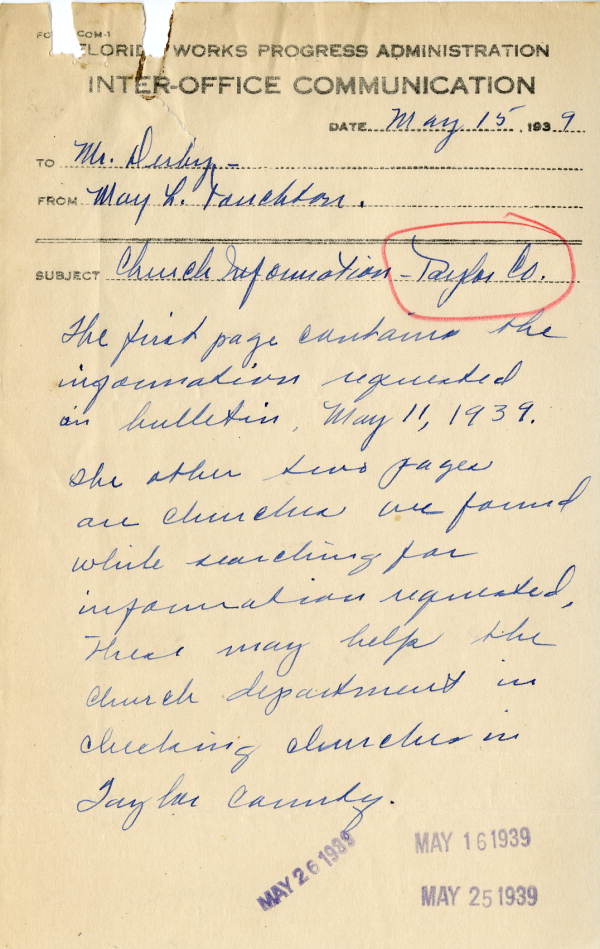 COM-1
FLORIDA WORKS PROGRESS ADMINISTRATION
INTER-OFFICE COMMUNICATION
DATE May 15, 1939
TO Mr. Derby –
FROM May L. Touchton.
SUBJECT Church Information – Taylor Co.
The first page contains the
information requested
in bulletin, May 11, 1939.
The other two pages
are churches we found
while searching for
information requested,
These may help the
church department in
checking churches in
Taylor County.
MAY 26 1939
MAY 16 1939
MAY 25 1939